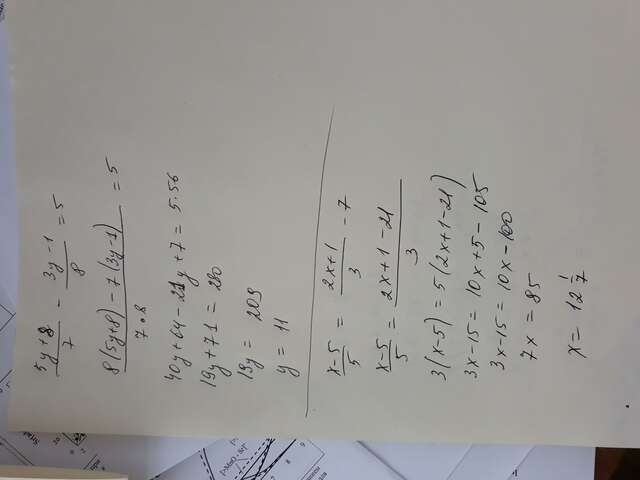 (5y+8)/7 - (3y-1)/8 = 5
(8(5y+8) - 7(3y-1))/(7·8) = 5
40y+64-21y+7 = 5·56
19y+71 = 280
19y = 209
y = 11
(x-5)/5 = (2x+1)/3 - 7
(x-5)/5 = (2x+1-21)/3
3(x-5) = 5(2x+1-21)
3x-15 = 10x+5-105
3x-15 = 10x-100
7x = 85
x = 12 1/7